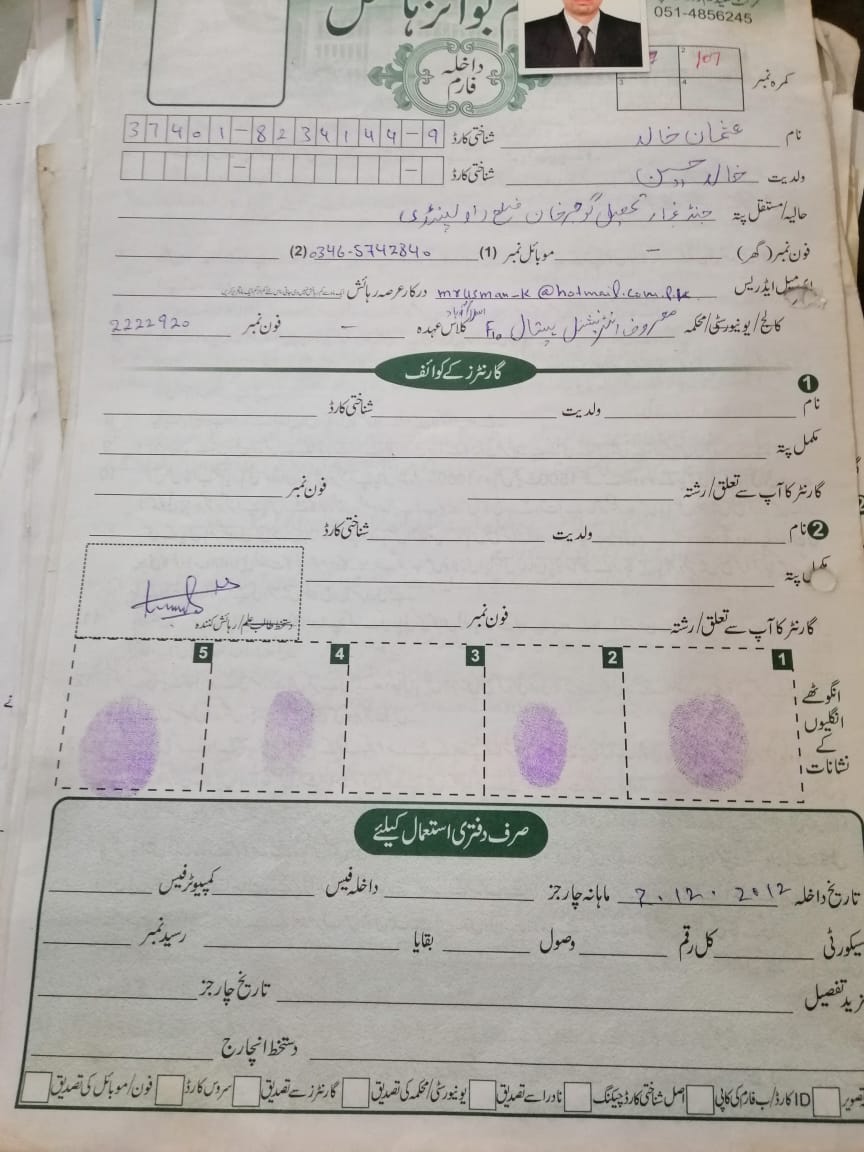 بوائز ہاسٹل
051-4856245
داخلہ
فارم
کمرہ نمبر 2 107
3 4
نام عثمان خالد شناختی کارڈ 37401-8234144-9
ولدیت خالد حسین شناختی کارڈ - -
حالیہ/مستقل پتہ جنڈ نجار تحصیل گوجرخان ضلع راولپنڈی
فون نمبر (گھر) - موبائل نمبر (1) 0346-5742840 (2)
ای میل ایڈریس mrusman_k@hotmail.com.pk درکار عرصہ رہائش
کالج/یونیورسٹی/محکمہ معروف انٹرنیشنل ہسپتال F10 اسلام آباد کلاس عہدہ - فون نمبر 2222920
گارنٹرز کے کوائف
1 نام ولدیت شناختی کارڈ
مکمل پتہ
گارنٹر کا آپ سے تعلق/رشتہ فون نمبر
2 نام ولدیت شناختی کارڈ
مکمل پتہ
گارنٹر کا آپ سے تعلق/رشتہ فون نمبر
دستخط طالب علم/رہائش کنندہ
انگوٹھے 1 2 3 4 5
انگلیوں
کے
نشانات
صرف دفتری استعمال کیلئے
تاریخ داخلہ 7.12.2012 ماہانہ چارجز داخلہ فیس کمپیوٹر فیس
سیکورٹی کل رقم وصول بقایا رسید نمبر
مزید تفصیل تاریخ چارجز
دستخط انچارج
تصویر ID کارڈ/ب فارم کی کاپی اصل شناختی کارڈ چیکنگ نادرا سے تصدیق یونیورسٹی/محکمہ کی تصدیق گارنٹرز سے تصدیق سروس کارڈ فون/موبائل کی تصدیق